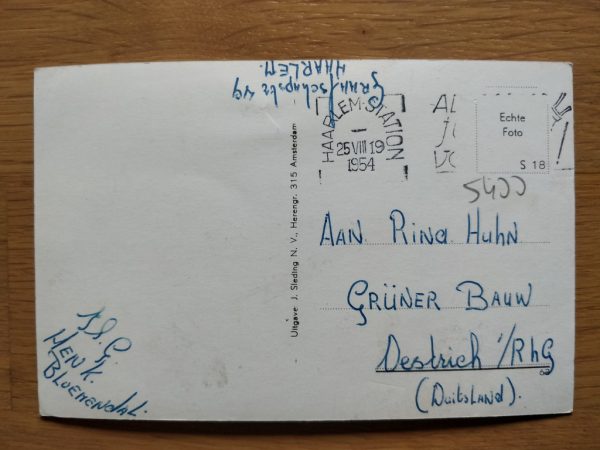 HAARLEM.
HAARLEM-STATION
25 VIII 19
1954
Echte
Foto
S 18
5400
Uitgave J. Sleding N. V., Herengr. 315 Amsterdam
AAN RINA HUHN
GRÜNER BAUW
Oestrich i/RhG
(Duitsland).
HENK.
BLOEMENDAL.